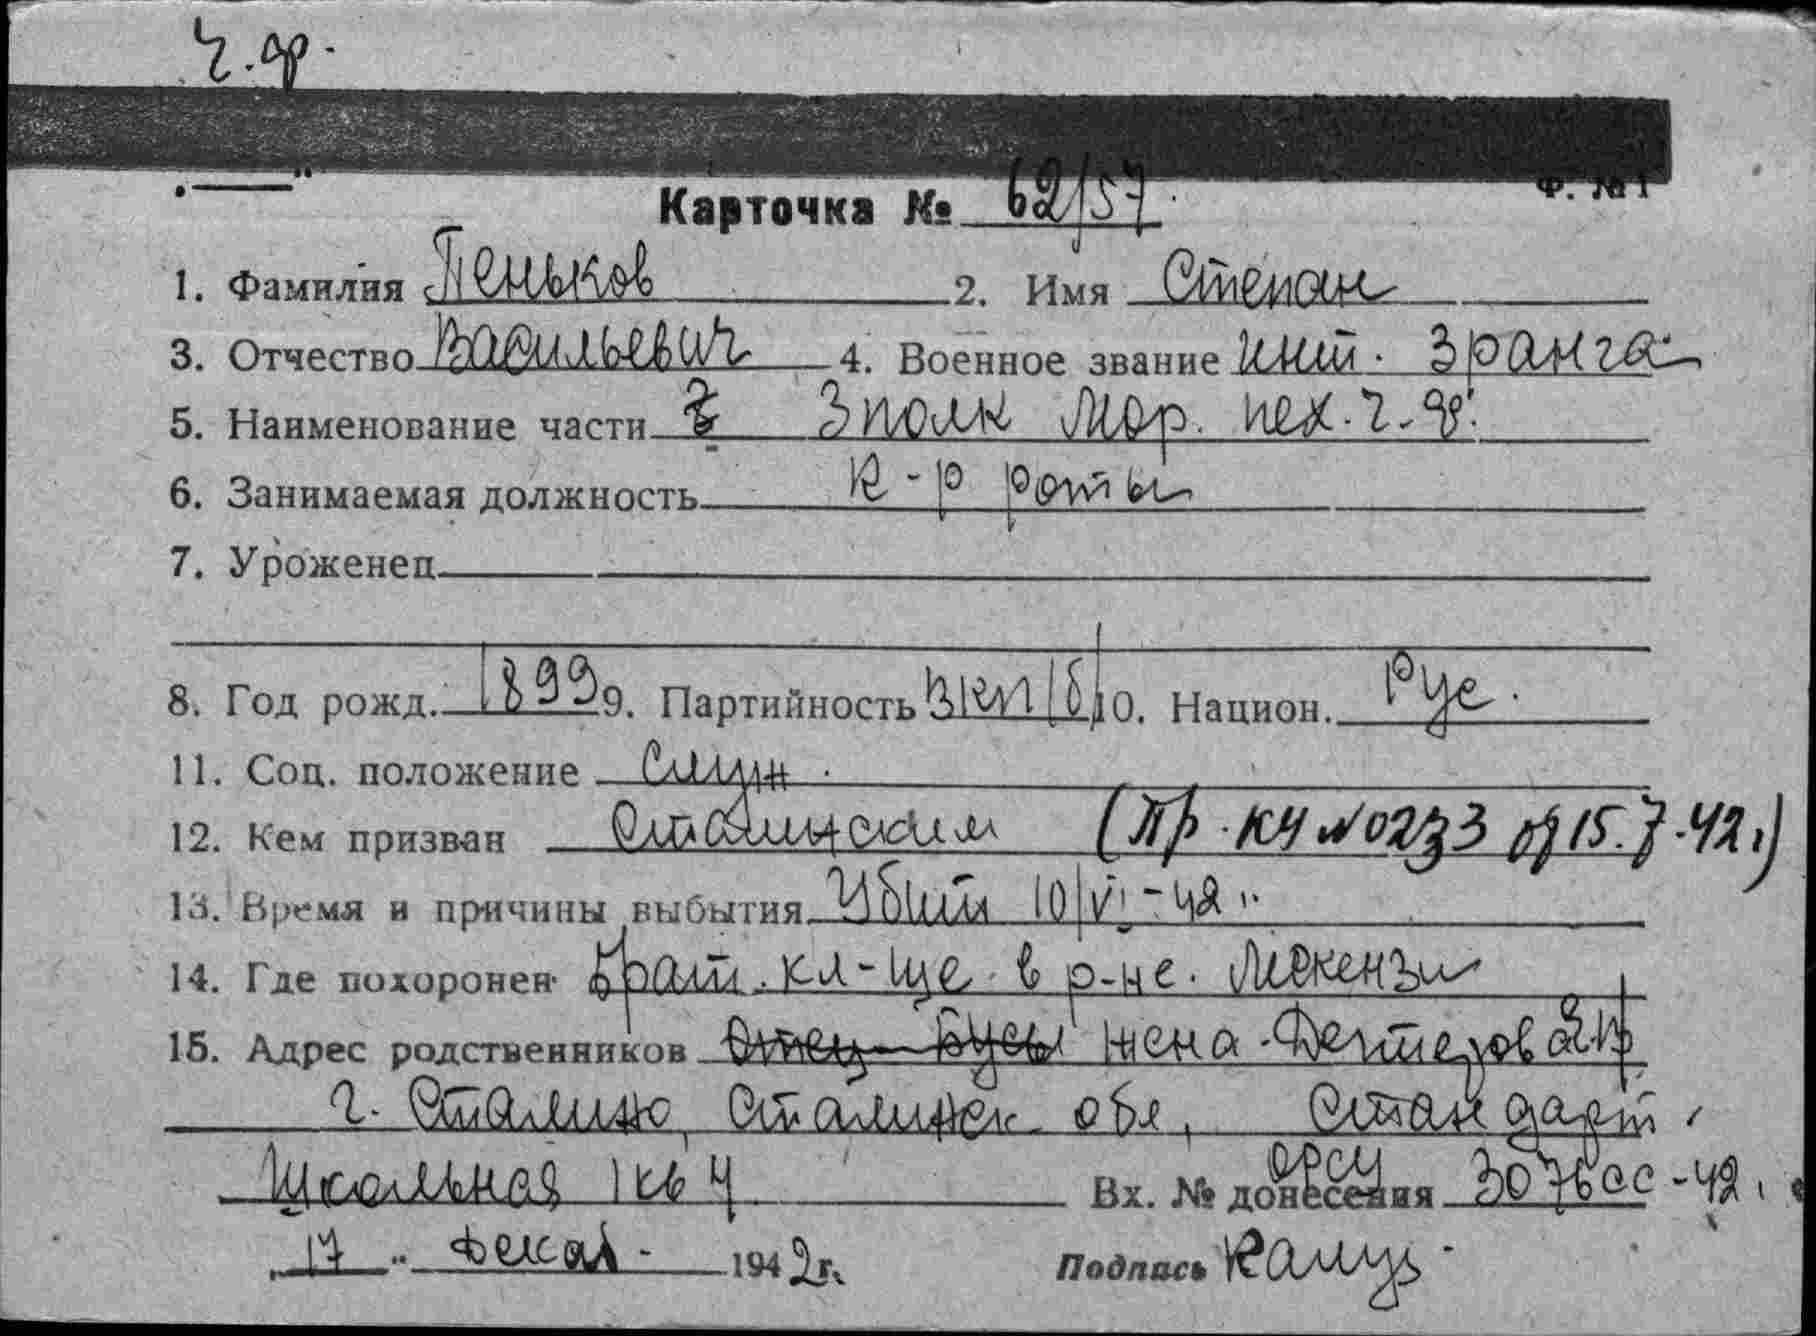 Ч.ф.
Ф. № 1
Карточка № 62/57
1. Фамилия Пеньков 2. Имя Степан
3. Отчество Васильевич 4. Военное звание инт. 3 ранга
5. Наименование части 3 полк Мор. пех. Ч.ф.
6. Занимаемая должность к-р роты
7. Уроженец
8. Год рожд. 1899 9. Партийность ВКП/б/ 10. Национ. Рус.
11. Соц. положение Служ.
12. Кем призван Сталинским (Пр. КЧ № 0233 от 15.7.42г.)
13. Время и причины выбытия Убит 10/VI-42г.
14. Где похоронен Брат. кл-ще в р-не. Мекензи
15. Адрес родственников Отец жена Дегтерова
г. Сталино, Сталинск обл, Стандарт
Школьная 1 кв 4 Вх. № донесения орсу 3076сс-42г.
17 " Декаб. 1942 г. Подпись